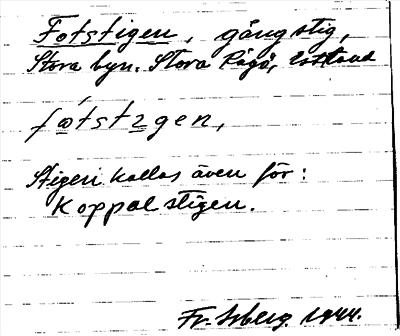 Fotstigen, gångstig,
Stora byn. Stora Rågö, Estland
fo̲tstı̲gen,
Stigen kallas även för:
Koppalstigen.
Fr. Isberg. 1944.